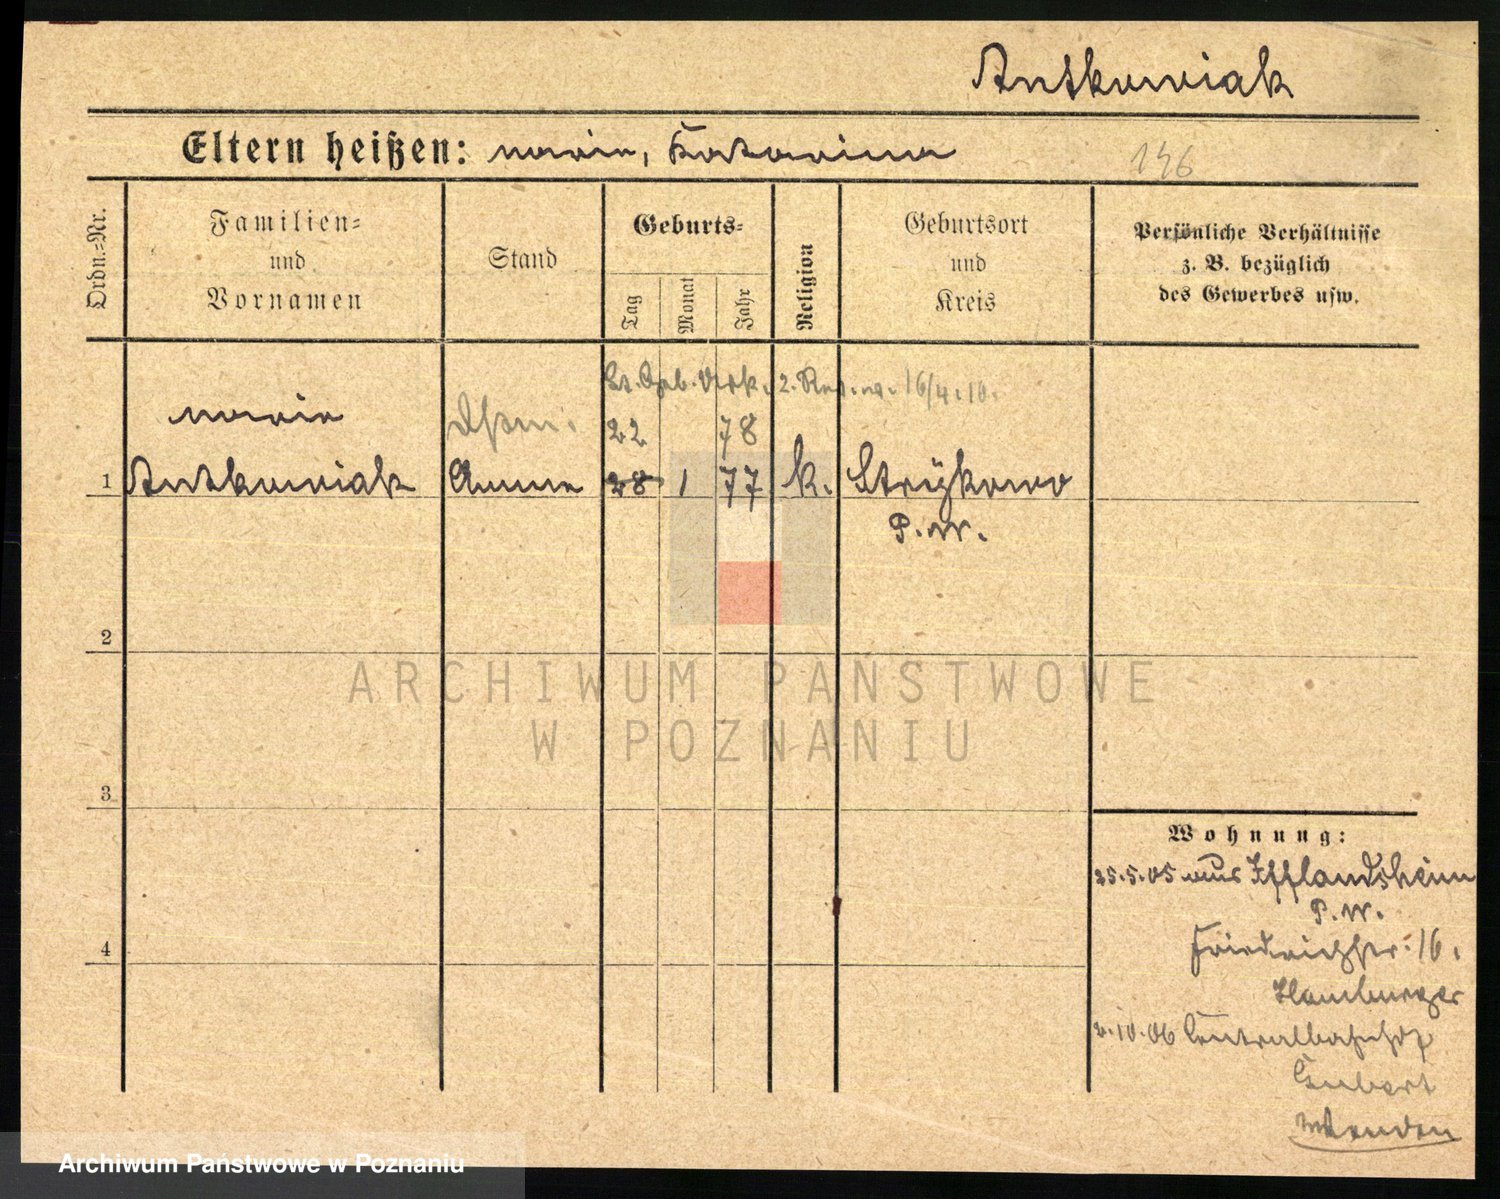 Antkowiak
Eltern heißen: Marie, Katarina
146
Ordn.-Nr.
Familien-
und
Vornamen
Stand
Geburts-
Tag
Monat
Jahr
Religion
Geburtsort
und
Kreis
Persönliche Verhältnisse
z. B. bezüglich
des Gewerbes usw.
16/4.10.
Marie
22 78
1 Antkowiak Amme 28 1 77 k. Strykowo
P.W.
2
ARCHIWUM PAŃSTWOWE
W POZNANIU
3
Wohnung:
25.5.05 aus Ifflandsheim
P.W.
4
Friedrichstr. 16.
Hamburger
2.10.06 Centralbahnhof
Archiwum Państwowe w Poznaniu